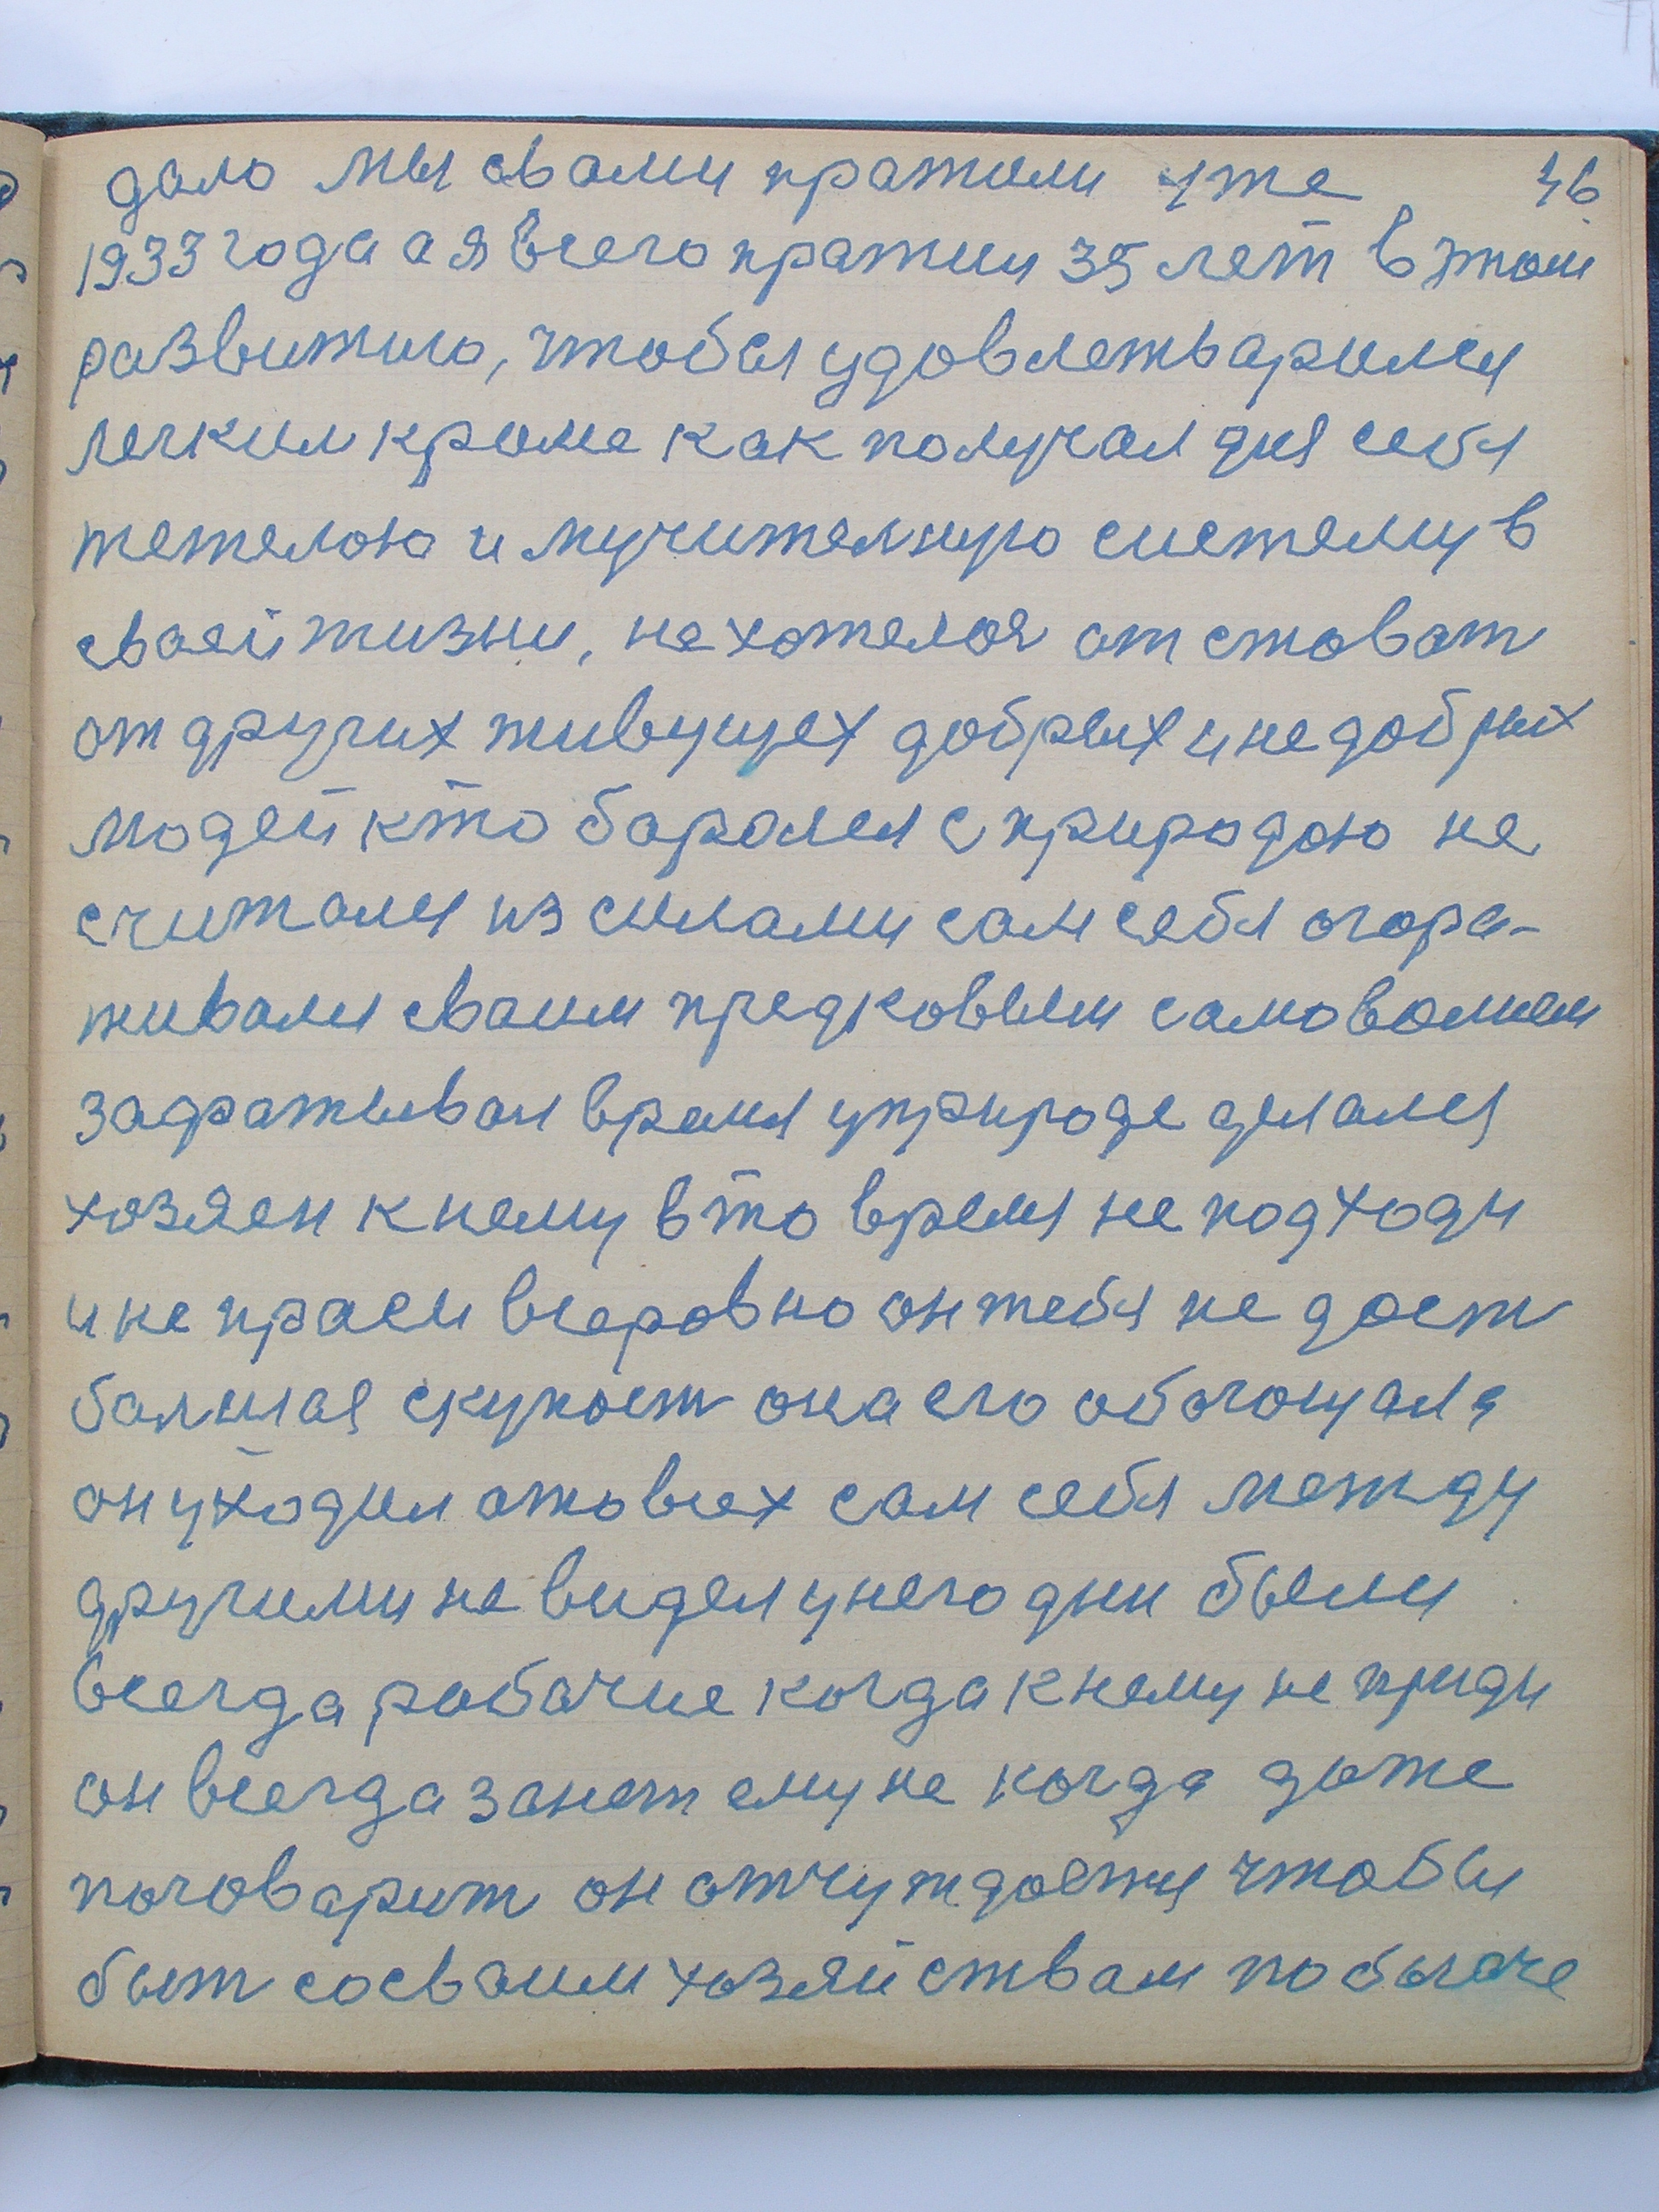 дало мы свами пражили уже 46
1933 года а я всего пражил 35 лет в этом
развитию, чтобы удовлетварился
легким кроме как получал для себя
тежелою и мучителную систему в
сваей жизни, не хотелоя отстоват
от других живущех добрых и недобрых
людей кто боролся с природою не
считался из силами сам себя огора-
живался сваим предковым самовольем
задратывал время у природе делался
хозяен к нему в то время не подходи
и не праси всеровно он тебя не даст
балшая скупост она его обогощала
он уходил отовсех сам себя между
другими не видел у него дни были
всегда рабочие когда к нему не приди
он всегда занет ему не когда даже
поговарит он отчуждается чтобы
быт со сваим хозяйствам побогаче